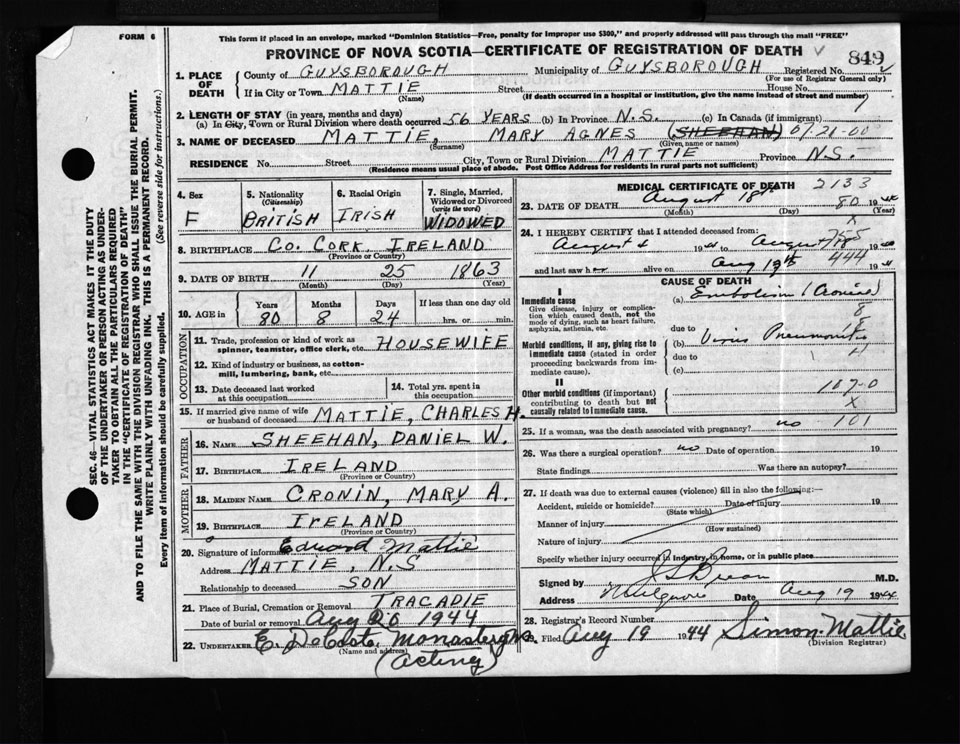 FORM 6
This form if placed in an envelope, marked "Dominion Statistics—Free, penalty for improper use $300," and properly addressed will pass through the mail "FREE"
PROVINCE OF NOVA SCOTIA—CERTIFICATE OF REGISTRATION OF DEATH
849
1. PLACE OF DEATH
County of GUYSBOROUGH Municipality of GUYSBOROUGH Registered No.
(For use of Registrar General only)
If in City or Town MATTIE Street House No.
(Name) (If death occurred in a hospital or institution, give the name instead of street and number)
2. LENGTH OF STAY (in years, months and days)
(a) In City, Town or Rural Division where death occurred 56 YEARS (b) In Province N.S. (c) In Canada (if immigrant)
3. NAME OF DECEASED MATTIE, MARY AGNES (SHEEHAN) 01-21-00
(Surname) (Given name or names)
RESIDENCE No. Street City, Town or Rural Division MATTIE Province N.S.
(Residence means usual place of abode. Post Office Address for residents in rural parts not sufficient)
SEC. 46—VITAL STATISTICS ACT MAKES IT THE DUTY
OF THE UNDERTAKER OR PERSON ACTING AS UNDERTAKER TO OBTAIN ALL THE PARTICULARS REQUIRED
IN THE "CERTIFICATE OF REGISTRATION OF DEATH"
AND TO FILE THE SAME WITH THE DIVISION REGISTRAR WHO SHALL ISSUE THE BURIAL PERMIT.
WRITE PLAINLY WITH UNFADING INK. THIS IS A PERMANENT RECORD.
Every item of information should be carefully supplied. (See reverse side for instructions.)
4. Sex
F
5. Nationality
(Citizenship)
BRITISH
6. Racial Origin
IRISH
7. Single, Married, Widowed or Divorced
(write the word)
WIDOWED
8. BIRTHPLACE CO. CORK, IRELAND
(Province or Country)
9. DATE OF BIRTH 11 25 1863
(Month) (Day) (Year)
10. AGE in Years 80 Months 8 Days 24 If less than one day old
hrs. or min.
OCCUPATION
11. Trade, profession or kind of work as HOUSEWIFE
spinner, teamster, office clerk, etc.
12. Kind of industry or business, as cotton-
mill, lumbering, bank, etc.
13. Date deceased last worked
at this occupation
14. Total yrs. spent in
this occupation
15. If married give name of wife
or husband of deceased MATTIE, CHARLES H.
FATHER
16. NAME SHEEHAN, DANIEL W.
17. BIRTHPLACE IRELAND
(Province or Country)
MOTHER
18. MAIDEN NAME CRONIN, MARY A.
19. BIRTHPLACE IRELAND
(Province or Country)
20. Signature of informant Edward Mattie
Address MATTIE, N.S
Relationship to deceased SON
21. Place of Burial, Cremation or Removal TRACADIE
Date of burial or removal Aug 20 1944
22. UNDERTAKER E. DeCoste Monastery N.S.
(Name and address)
(acting)
MEDICAL CERTIFICATE OF DEATH 2133
23. DATE OF DEATH August 18th 80 19
(Month) (Day) (Year)
24. I HEREBY CERTIFY that I attended deceased from: 755
August 19 to August 18 19
and last saw her alive on Aug 19th 444 19
CAUSE OF DEATH
I
Immediate cause
Give disease, injury or complication which caused death, not the mode of dying, such as heart failure, asphyxia, asthenia, etc.
(a) Embolism
8
due to
Morbid conditions, if any, giving rise to immediate cause (stated in order proceeding backwards from immediate cause).
(b) Virus Pneumonitis
due to
(c)
II
Other morbid conditions (if important) contributing to death but not causally related to immediate cause.
107-0
X
25. If a woman, was the death associated with pregnancy? no 101
26. Was there a surgical operation? no Date of operation 19
State findings Was there an autopsy?
27. If death was due to external causes (violence) fill in also the following:—
Accident, suicide or homicide? Date of injury 19
(State which)
Manner of injury
(How sustained)
Nature of injury
Specify whether injury occurred in industry, in home, or in public place
Signed by M.D.
Address Mulgrave Date Aug 19 1944
28. Registrar's Record Number
Filed Aug 19 1944 Simon Mattie
(Division Registrar)